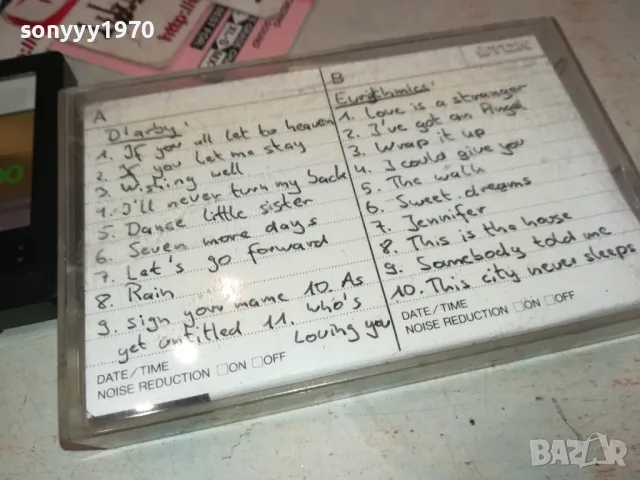 sonyyy1970
TDK
A
D'arby:
1. If you all let to heaven
2. If you Let me stay
3. Wishing well
4. I'll never turn my back
5. Dance little sister
6. Seven more days
7. Let's go forward
8. Rain
9. Sign your name 10. As
yet untitled 11. Who's
Loving you
DATE/TIME
NOISE REDUCTION □ON □OFF
B
Eurythmics:
1. Love is a stranger
2. I've got an Angel
3. Wrap it up
4. I could give you
5. The walk
6. Sweet dreams
7. Jennifer
8. This is the house
9. Somebody told me
10. This city never sleeps
DATE/TIME
NOISE REDUCTION □ON □OFF
BAZAR
bazar.bg